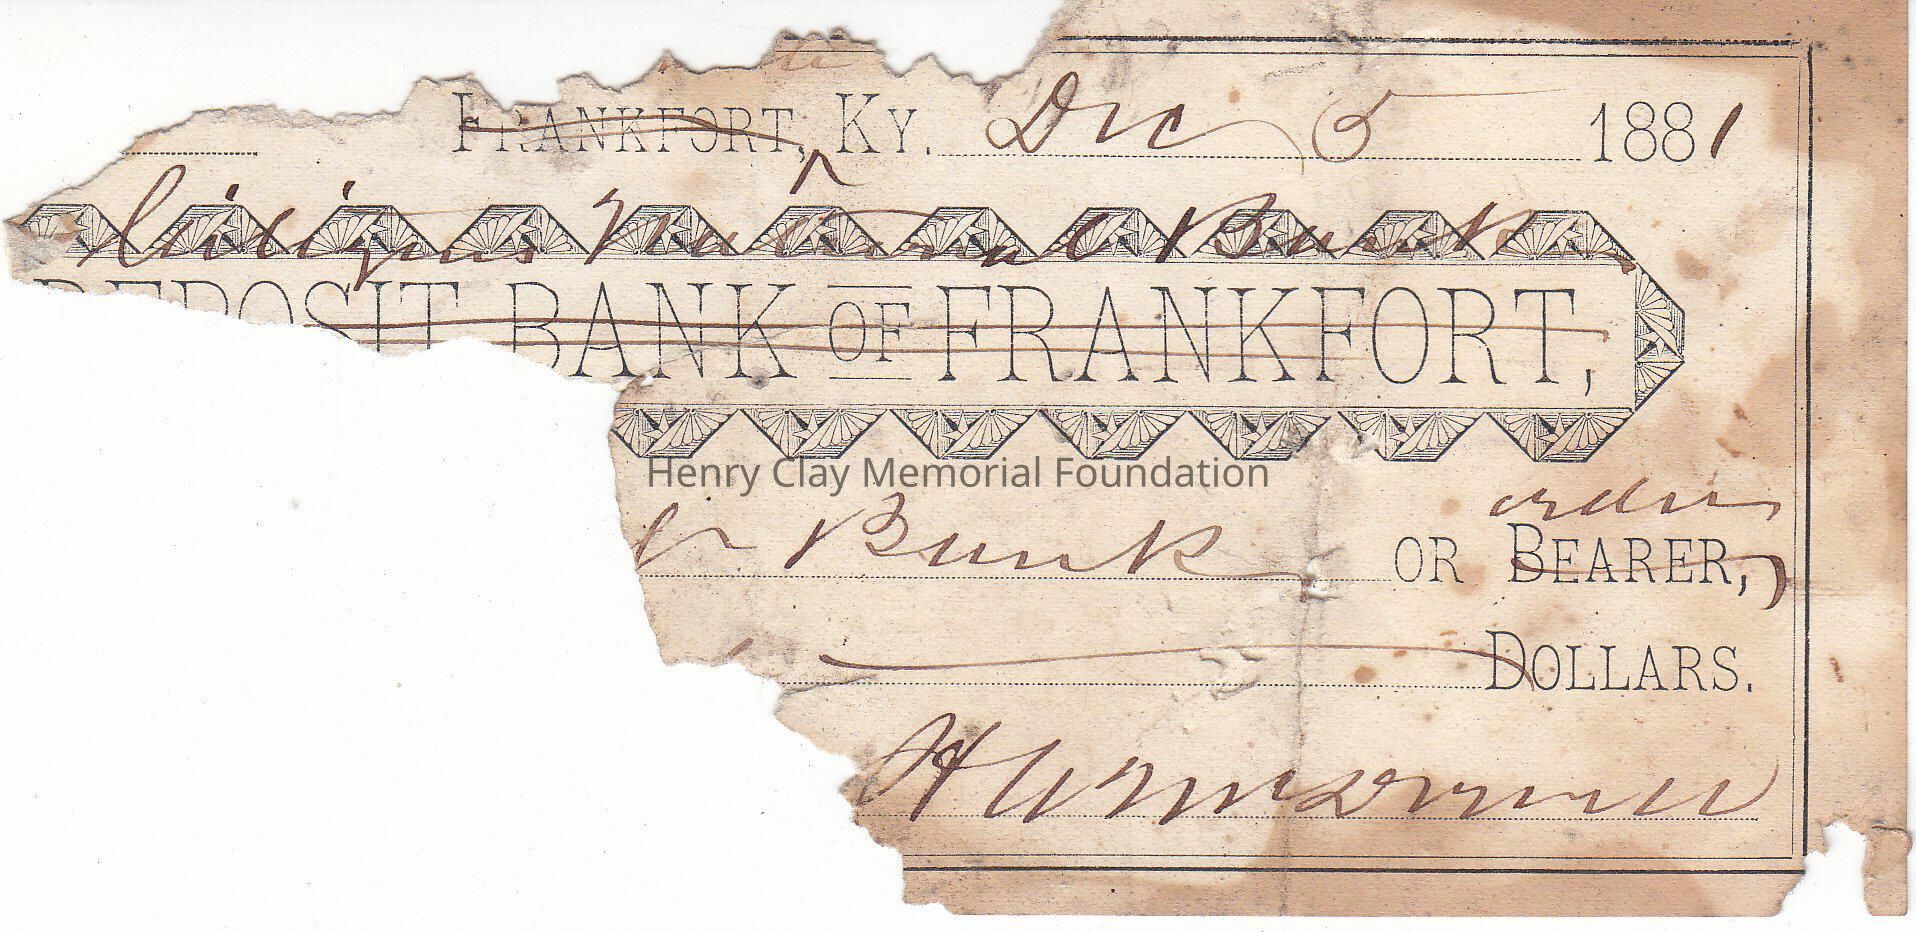 FRANKFORT, KY. Dec 5 1881
Citizens National Bank
DEPOSIT BANK OF FRANKFORT,
Henry Clay Memorial Foundation
Bank order
OR BEARER,
DOLLARS.